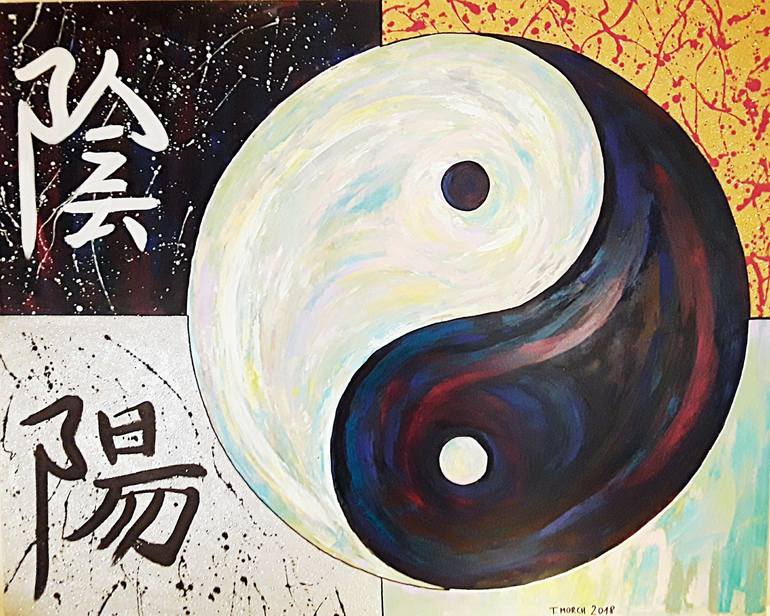 陰
陽
T. MORCH 2018